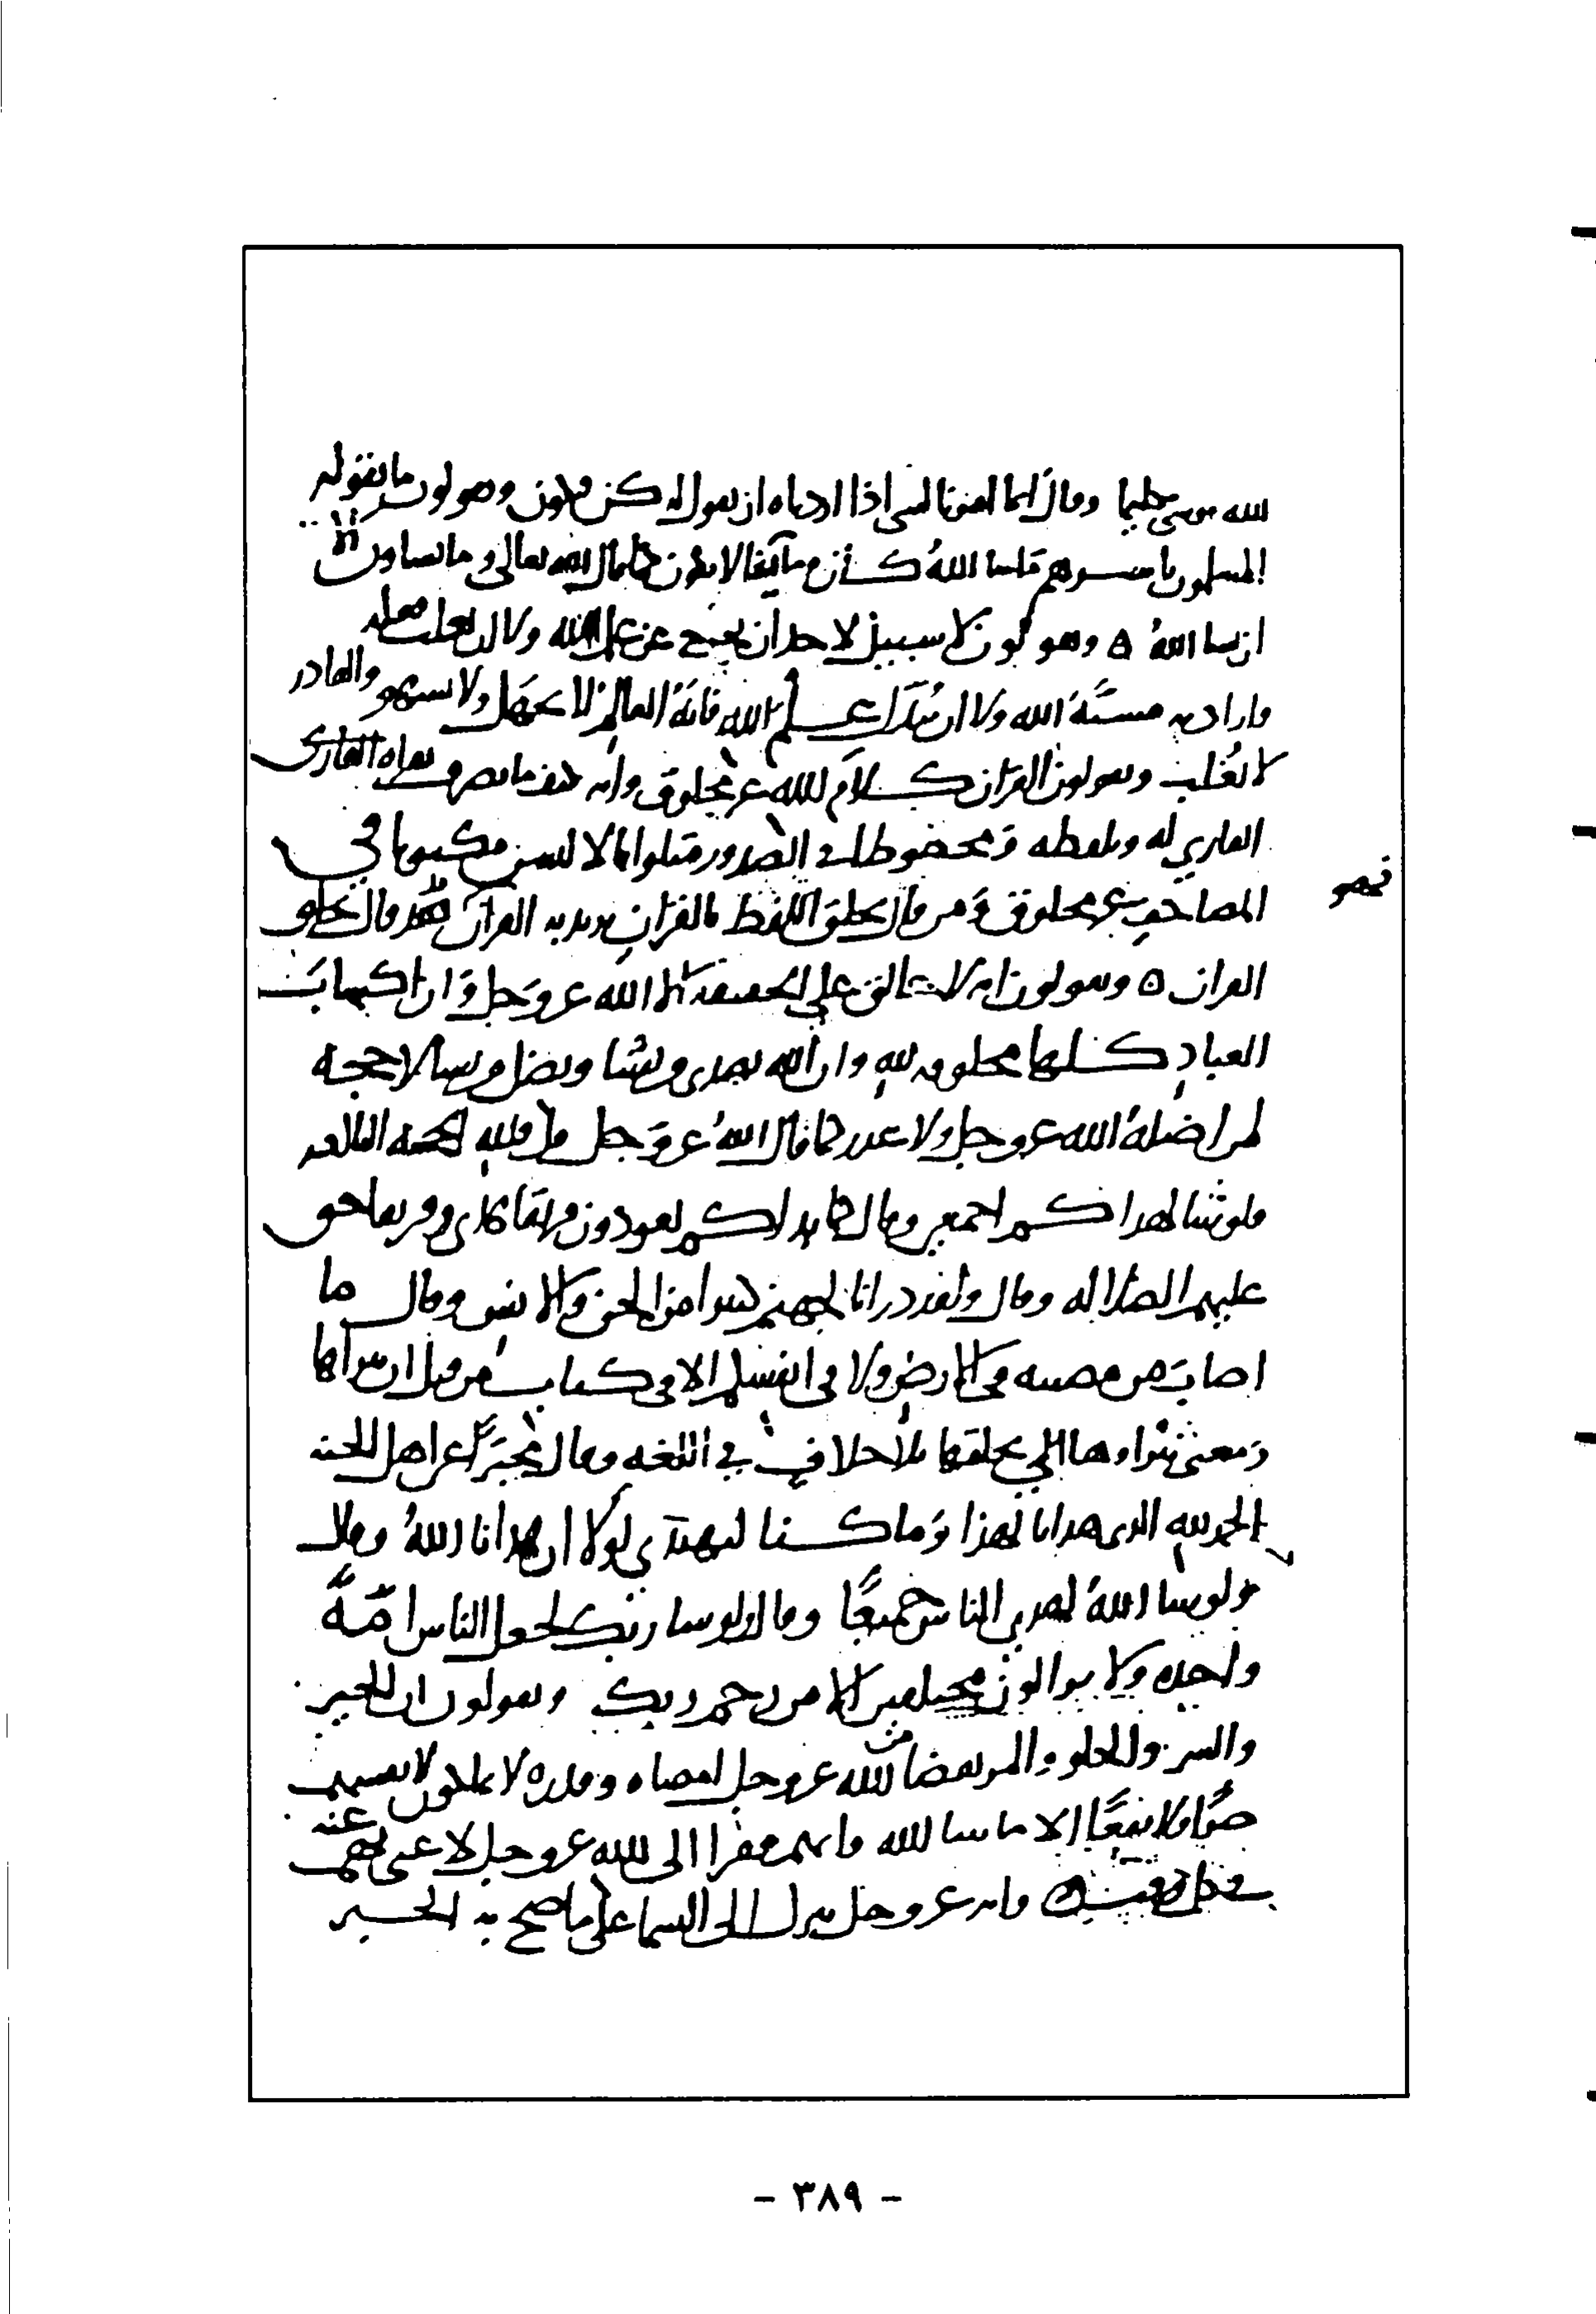 الله موسى تكليما وقال انما امرنا لشي اذا اردناه ان نقول له كن فيكون ويقولون ما يقوله
المسلمون باسرهم ما شا الله كان وما لا يشا لا يكون كما قال الله تعالى وما تشاون الا
ان يشا الله ٥ ويقولون لا سبيل لاحد ان يخرج عن علم الله ولا ان يغلب فعله
وارادته مشيّة الله ولا ان يبدل علم الله فانه العالم لا يجهل ولا يسهو والقادر
لا يُغلب ويقولون القران كلام الله غير مخلوق وانه كيف ما تصرف بقراه القارى
القاري له وبلفظه ومحفوظا في الصدور متلوا بالالسن مكتوبا في
المصاحف غير مخلوق ومن قال بخلق اللفظ بالقران يريد به القران فقد قال بخلق
فهو
القران ٥ ويقولون انه لا خالق على الحقيقة الا الله عز وجل وان اكساب
العباد كلها مخلوقه لله وان الله يهدى من يشا ويضل من يشا لا حجه
لمن اضله الله عز وجل ولا عذر كما قال الله عز وجل قل فلله الحجه البالغه
فلو شا لهداكم اجمعين وقال كما بداكم تعودون فريقا هدى وفريقا حق
عليهم الضلاله وقال ولقد درانا لجهنم كثيرا من الجن والانس وقال ما
اصاب من مصيبه في الارض ولا في انفسكم الا في كتاب من قبل ان نبراها
ومعنى نبراها اي نخلقها بلا خلاف في اللغه وقال مخبرًا عن اهل الجنه
الحمد لله الدى هدانا لهذا وما كنا لنهتدي لولا ان هدانا الله وقال
ولو يشا الله لهدى الناس جميعًا وقال ولو شا ربك لجعل الناس امّةً
واحده ولا يزالون مختلفين الا من رحم ربك ويقولون ان الخير
والشر والحلو والمر بقضا من الله عز وجل امضاه وقدره لا يملكون لانفسهم
ضرًا ولا نفعًا الا ما شا الله وانهم فقرا الى الله عز وجل لا غنى لهم عنه
في كل وقت وانه عز وجل ينزل الى السما على ما صح به الخبر
- ٣٨٩ -